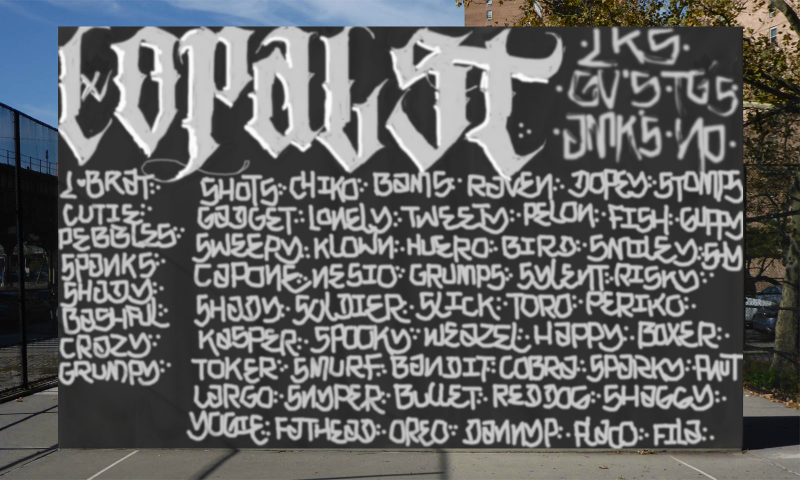 COPALST
LKS
GV'S TGS
JMK'S NO
L·BRAT
CUTIE
PEBBLES
SPANKS
SHADY
BASHFUL
CRAZY
GRUMPY
SHOTS CHIKO BAMS RAVEN DOPEY STOMPS
GADGET LONELY TWEETY PELON FISH GUPPY
SWEEPY KLOWN HUERO BIRD SMILEY
CAPONE NESIO GRUMPS SYLENT RISKY
SHADY SOLDIER SLICK TORO PERIKO
KASPER SPOOKY WEAZEL HAPPY BOXER
TOKER SMURF BANDIT COBRA SPARKY
LARGO SNYPER BULLET RED DOG SHAGGY
YOGIE FATHEAD OREO FLACO FILA